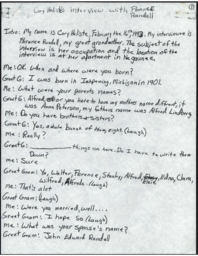 Cory Hulste Interview with Florence Randall
Intro: My name is Cory Hulste, February the 16th, My interviewee is
Florence Randall, my great grandmother. The subject of the
interview is her occupation and the location of the
interview is at her apartment in the
Me: OK. When and where were you born?
Great G: I was born in Ishpeming, Michigan in 1901.
Me: What were your parents names?
Great G: Alfred, or you have to have my mothers name first, it
was Anna Peterson, my father name was Alfred Lindberg
Me: Do you have brothers + sisters?
Great G: Yes, a whole bunch of them, eight (laugh)
Me: Really?
Great G: things on here. Do I have to write them
Down?
Me: Sure
Great Gram: Yo, Walter, Florence, Stanley, Alfred, Helen, Clara,
Wilfred,
Me: That's alot
Great Gram: (laugh)
Me: Were you married, well....
Great Gram: I hope so (laugh)
Me: What was your spouse's name?
Great Gram: John Edward Randall